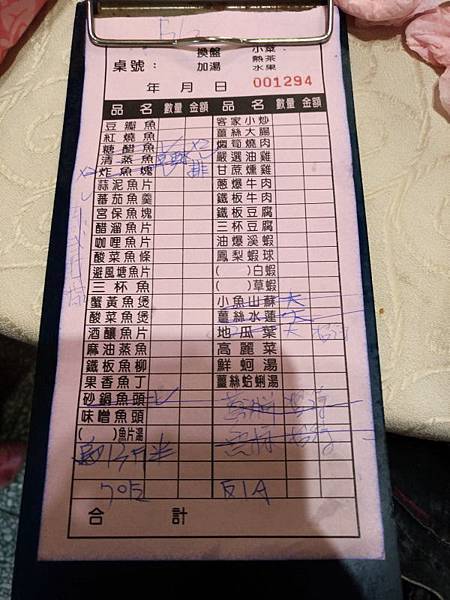 換盤 小菜：
熱茶
桌號： 加湯 水果
年 月 日 001294
品名 數量 金額 品名 數量 金額
豆瓣魚 客家小炒
紅燒魚 薑絲大腸
糖醋魚 燜筍燒肉
清蒸魚 嚴選油雞
炸魚塊 甘蔗燻雞
蒜泥魚片 蔥爆牛肉
蕃茄魚羹 鐵板牛肉
宮保魚塊 鐵板豆腐
醋溜魚片 三杯豆腐
咖哩魚片 油爆溪蝦
酸菜魚條 鳳梨蝦球
避風塘魚片 ( )白蝦
三杯魚 ( )草蝦
蟹黃魚煲 小魚山蘇 大
酸菜魚煲 薑絲水蓮 大
酒釀魚片 地瓜葉 大
麻油蒸魚 高麗菜
鐵板魚柳 鮮蚵湯
果香魚丁 薑絲蛤蜊湯
砂鍋魚頭
味噌魚頭
( )魚片湯
合計